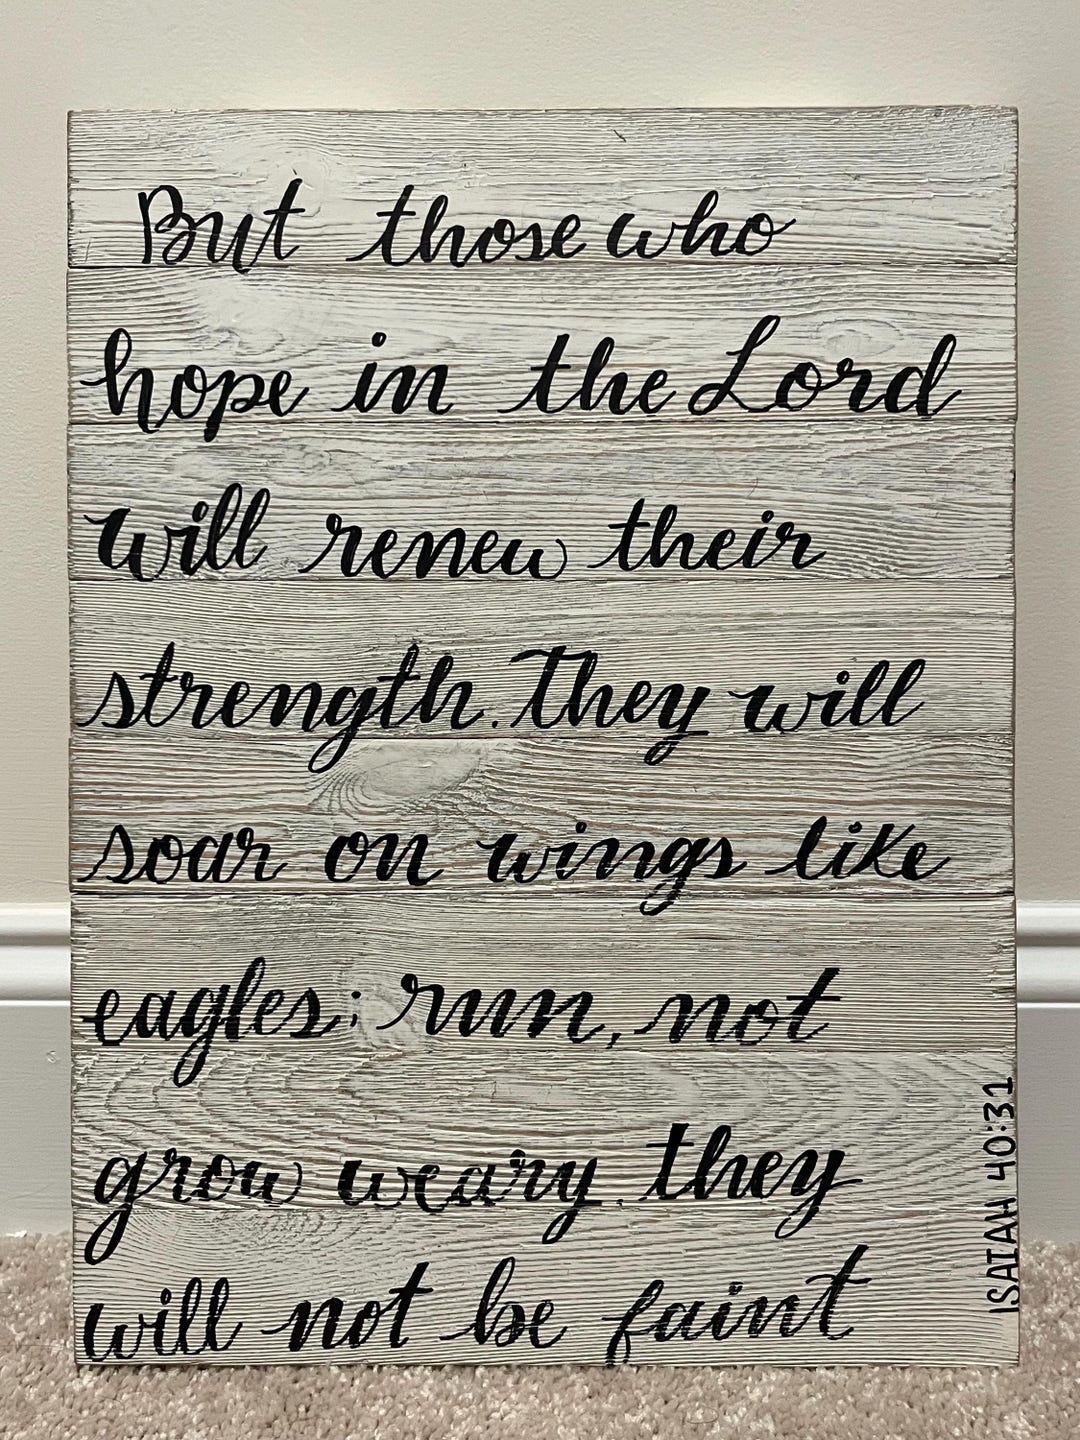 But those who
hope in the Lord
will renew their
strength. They will
soar on wings like
eagles; run, not
grow weary. they
will not be faint
ISAIAH 40:31